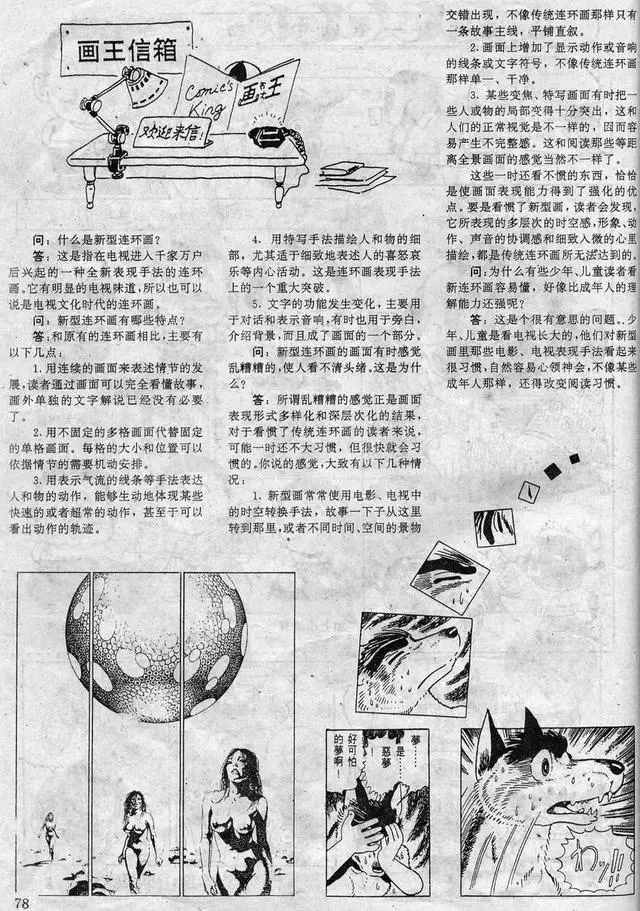 画王信箱
Comic's
King
画王
欢迎来信!
问：什么是新型连环画？
答：这是指在电视进入千家万户
后兴起的一种全新表现手法的连环
画。它有明显的电视味道，所以也可以
说是电视文化时代的连环画。
问：新型连环画有哪些特点？
答：和原有的连环画相比，主要有
以下几点：
1．用连续的画面来表述情节的发
展，读者通过画面可以完全看懂故事，
画外单独的文字解说已经没有必要
了。
2．用不固定的多格画面代替固定
的单格画面。每格的大小和位置可以
依据情节的需要机动安排。
3．用表示气流的线条等手法表达
人和物的动作，能够生动地体现某些
快速的或者超常的动作，甚至于可以
看出动作的轨迹。
4．用特写手法描绘人和物的细
部，尤其适于细致地表述人的喜怒哀
乐等内心活动。这是连环画表现手法
上的一个重大突破。
5．文字的功能发生变化，主要用
于对话和表示音响，有时也用于旁白，
介绍背景，而且成了画面的一个部分。
问：新型连环画的画面有时感觉
乱糟糟的，使人看不清头绪。这是为什
么？
答：所谓乱糟糟的感觉正是画面
表现形式多样化和深层次化的结果，
对于看惯了传统连环画的读者来说，
可能一时还不大习惯，但很快就会习
惯的。你说的感觉，大致有以下几种情
况：
1．新型画常常使用电影、电视中
的时空转换手法，故事一下子从这里
转到那里，或者不同时间、空间的景物
交错出现，不像传统连环画那样只有
一条故事主线，平铺直叙。
2．画面上增加了显示动作或音响
的线条或文字符号，不像传统连环画
那样单一、干净。
3．某些变焦、特写画面有时把一
些人或物的局部变得十分突出，这和
人们的正常视觉是不一样的，因而容
易产生不完整感。这和阅读那些等距
离全景画面的感觉当然不一样了。
这些一时还看不惯的东西，恰恰
是使画面表现能力得到了强化的优
点。要是看惯了新型画，读者会发现，
它所表现的多层次的时空感，形象、动
作、声音的协调感和细致入微的心里
描绘，都是传统连环画所无法达到的。
问：为什么有些少年、儿童读者看
新连环画容易懂，好像比成年人的理
解能力还强呢？
答：这是个很有意思的问题。少
年、儿童是看电视长大的，他们对新型
画里那些电影、电视表现手法看起来
很习惯，自然容易心领神会，不像某些
成年人那样，还得改变阅读习惯。
夢…
…是…
惡夢…
好可怕
的夢啊！
わッ!!
78